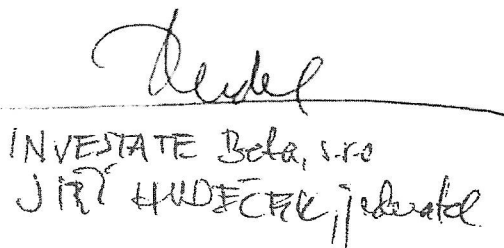 INVESTATE Beta, s.r.o
JIŘÍ HUDEČEK, jednatel